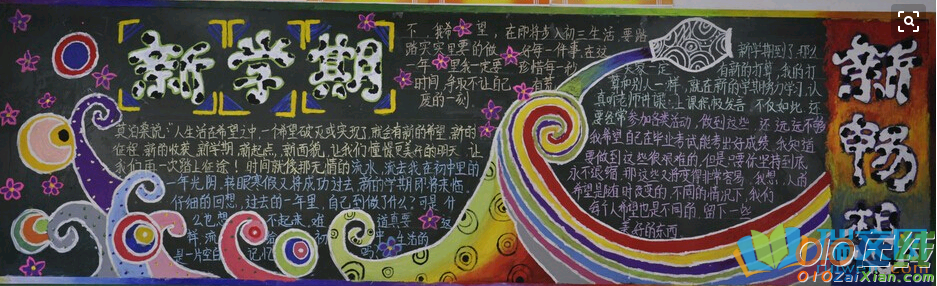 新学期
莫泊桑说，"人生活在希望之中，一个希望破灭或实现了，就会有新的希望，新的
征程，新的收获，新学期，新起点，新面貌，让我们憧憬更美好的明天，让
我们再一次踏上征途！时间就像那无情的流水，滚去我在初中里的
一年光阴，转眼寒假又将成功过去，新的学期即将来临，
仔细的回想，过去的一年里，自己到做了什么？可是，什
么也想 不起来，难 道真要 这
样，流 生活的
是一片空白 记忆 吗
下 我希 望，在即将步入初三生活，要踏
踏实实里要的做 好每一件事，在这
一年 里我一定要 珍惜每一秒
时间，争取不让自己 有荒
废的一刻
新学期到了，那么
大家一定 有新的打算，我的打
算和别人一样，就在新的学期努力学习，认
真听老师讲课，上课积极发言，不仅如此，还
要经常参加各类活动，做到这些，还远远不够
我希望自己在毕业考试能考出好成绩，我知道
要做到这些很艰难的，但是只要你坚持到底，
永不退缩，那这些又将变得非常容易，我想，人的
希望是随时改变的，不同的情况下，我们
每个人希望也是不同的，留下一些
美好的东西
新畅想
010在线
010ZaiXian.com